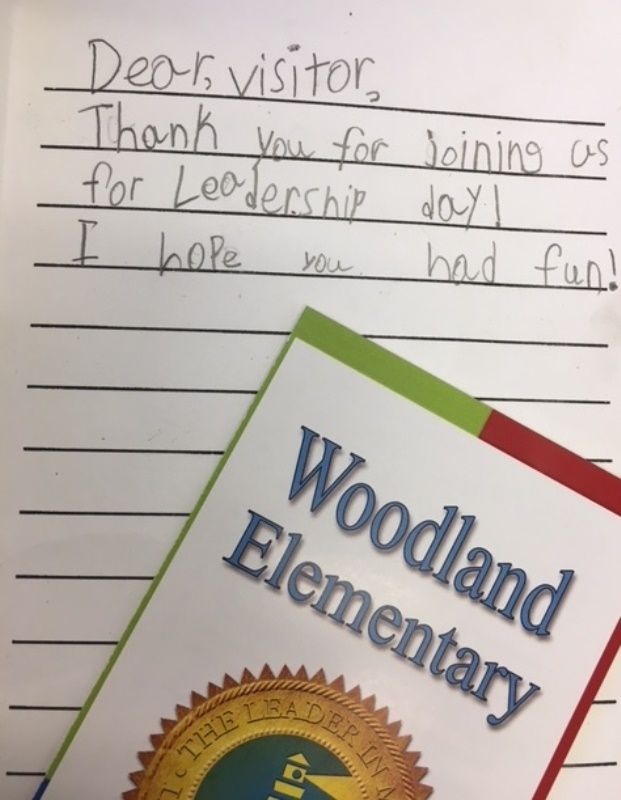 Dear, visitor,
Thank you for joining us
for Leadership day!
I hope you had fun!
Woodland
Elementary
THE LEADER IN